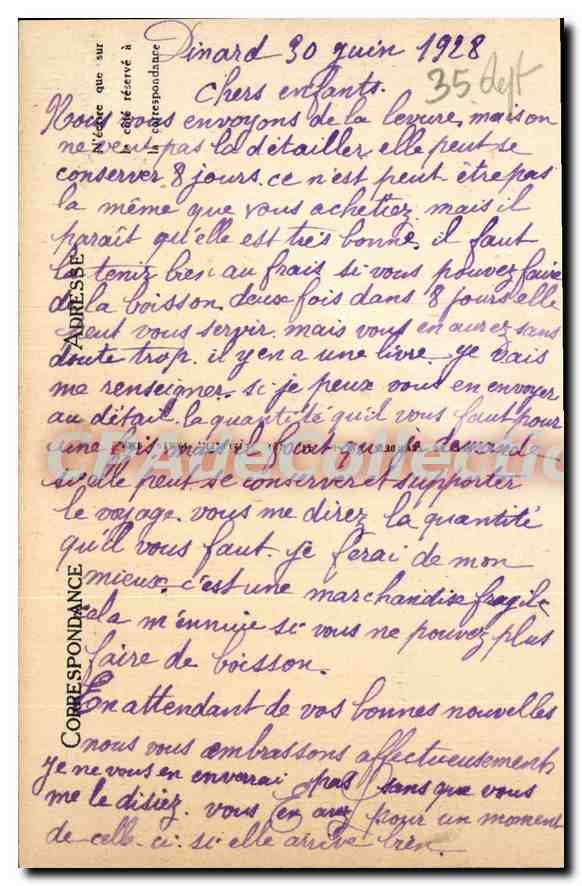 Dinard 30 juin 1928
35 dept
chers enfants.
Nous vous envoyons de la levure, mais on
ne veut pas la détailler elle peut se
conserver 8 jours. ce n'est peut être pas
la même que vous achetiez mais il
paraît qu'elle est très bonne, il faut
la tenir bien au frais si vous pouvez faire
de la boisson deux fois dans 8 jours elle
peut vous servir mais vous en aurez sans
doute trop. il y en a une livre. je vais
me renseigner si je peux vous en envoyer
au détail la quantité qu'il vous faut pour
une fois mais il faut que je demande
si elle peut se conserver et supporter
le voyage. vous me direz la quantité
qu'il vous faut. je ferai de mon
mieux. c'est une marchandise fragile
cela m'ennuie si vous ne pouvez plus
faire de boisson.
En attendant de vos bonnes nouvelles
nous vous embrassons affectueusement
je ne vous en enverrai pas sans que vous
me le disiez. vous en avez pour un moment
de celle-ci. si elle arrive bien.
N'écrire que sur
le côté réservé à
la correspondance
ADRESSE
CORRESPONDANCE
CPADeCollection